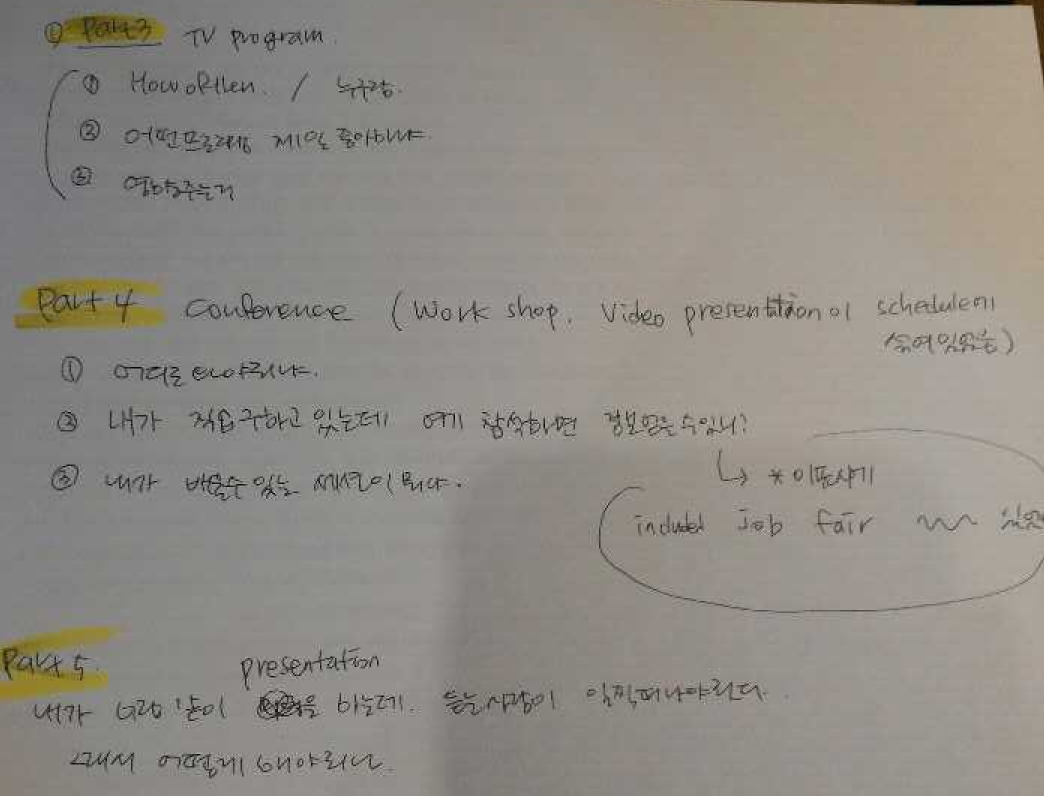 ① Part3 TV program.
① How often. / 누구랑.
② 어떤프로그램 제일 좋아하냐.
③ 영향주는거
Part 4 conference (Work shop. Video presentation이 schedule에
섞여있었음)
① 어디로 가야하냐.
② 내가 직업구하고 있는데 여기 참석하면 정보얻는수있니?
③ 내가 배울수 있는 세션이 뭐냐.
↳ *이표사기
included Job fair
Part 5. presentation
내가 너랑 같이 을 하는데. 듣는사람이 일찍떠나야된다.
그래서 어떻게 해야하냐.